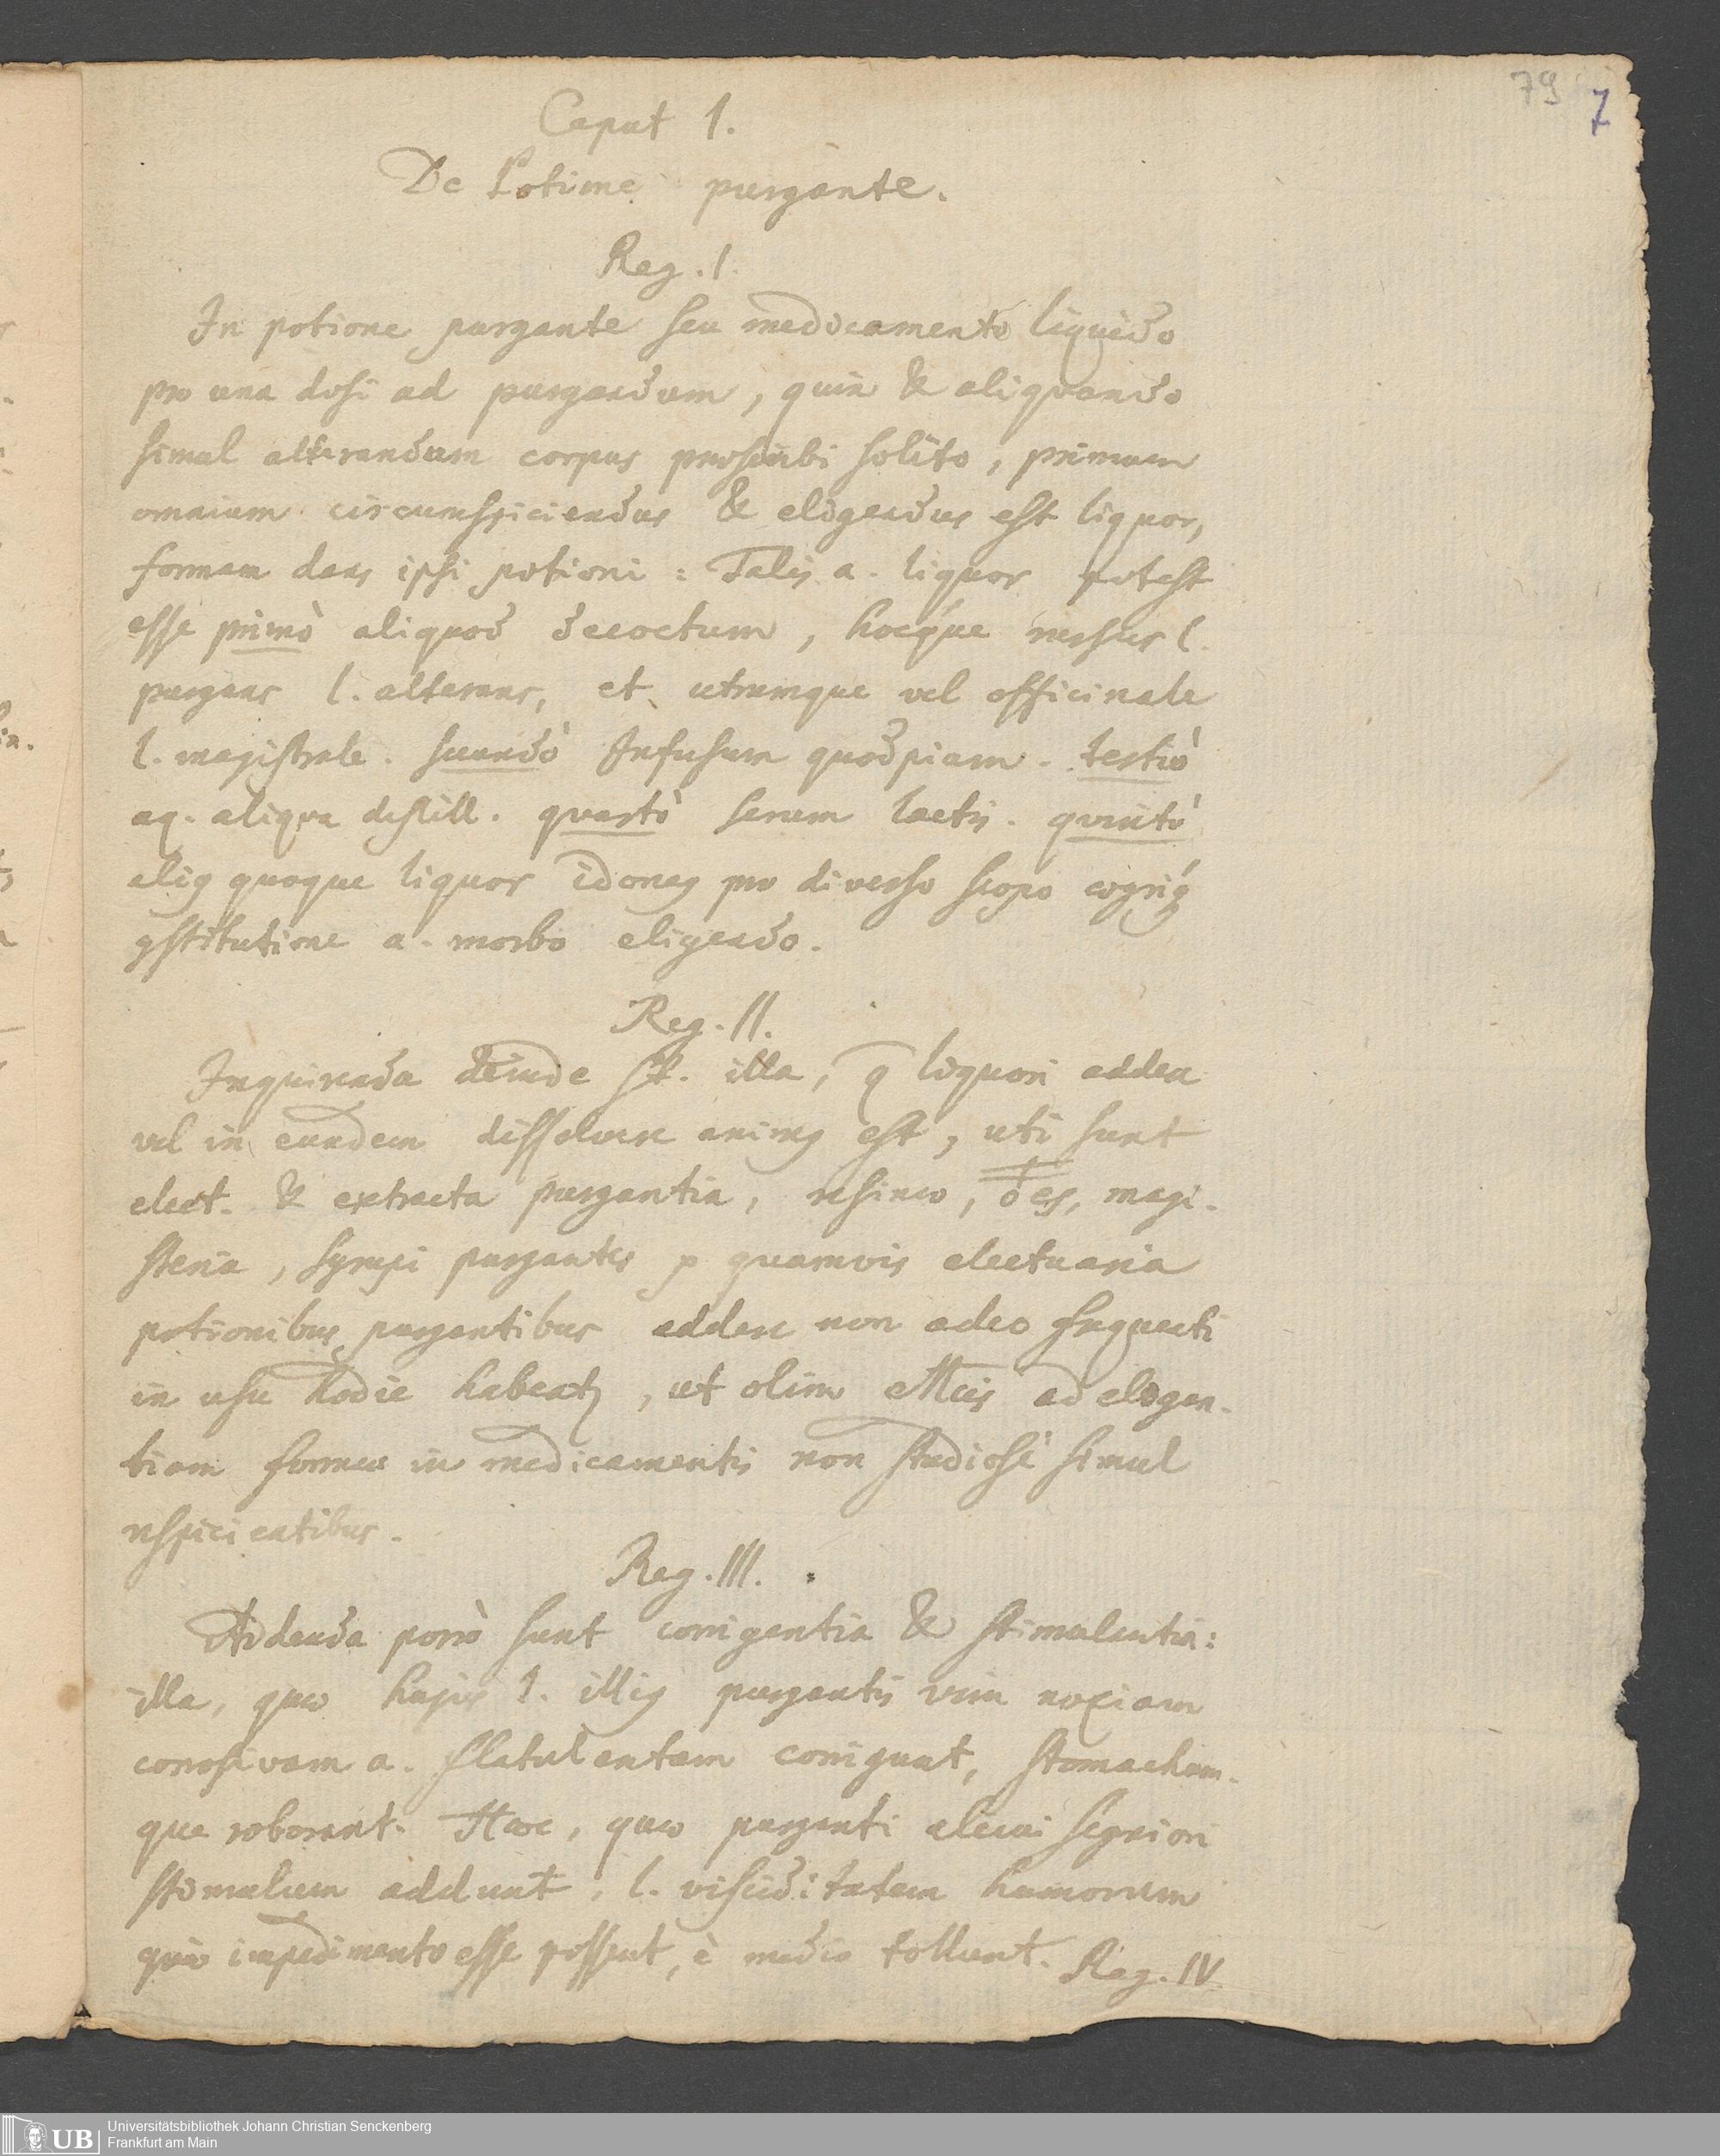 79 7
Caput 1.
De Potione purgante.
Reg. I.
In potione purgante seu medicamento liquido
pro una dosi ad purgandum, quin & aliquando
simul alterandum corpus proscribi solito, primum
omnium circumspiciendus & eligendus est liquor,
formam dans ipsi potioni: Talis a. liquor potest
esse primò aliquod decoctum, hocque rursus l.
purgans l. alterans, et utrumque vel officinale
l. magistrale. secundò Infusum quodpiam. tertiò
aq. aliqua destill. quartò serum lactis. quintò
quoque liquor pro diverso scopo
a. morbo eligendo.
Reg. II.
Inquirenda deinde st. illa, q liquori addere
vel in eundem dissolvere est, uti sunt
elect. & extracta purgantia, resinæ, magi-
steria, syrupi purgantes quamvis electuaria
potionibus purgantibus addere non adeo frequenti
in usu hodie, ut olim ad elegan-
tiam formæ in medicamentis non studiosè simul
respicientibus.
Reg. III.
Addenda porrò sunt corrigentia & stimulantia:
illa, quæ hujus l. purgantis vim noxiam
corrosivam a. flatulentam corrigunt, stomachum-
que roborant. Hæc, quæ purganti alicui segniori
stimulum addunt, l. visciditatem humorum
quæ impedimento esse possent, è medio tollunt. Reg. IV
Universitätsbibliothek Johann Christian Senckenberg
UB Frankfurt am Main